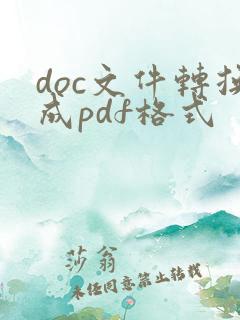 doc文件轉換
成pdf格式
莎翁
未经同意禁止转载